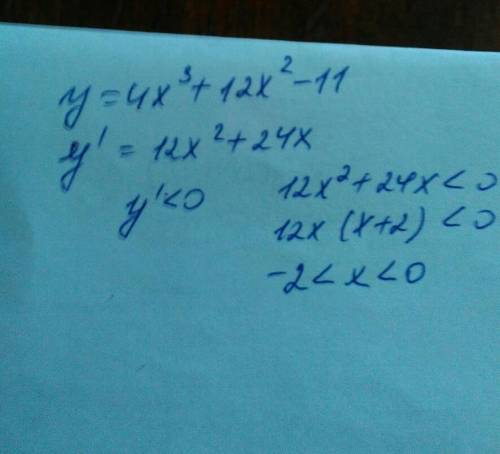 y = 4x³ + 12x² - 11
y' = 12x² + 24x
y' < 0 12x² + 24x < 0
12x (x+2) < 0
-2 < x < 0